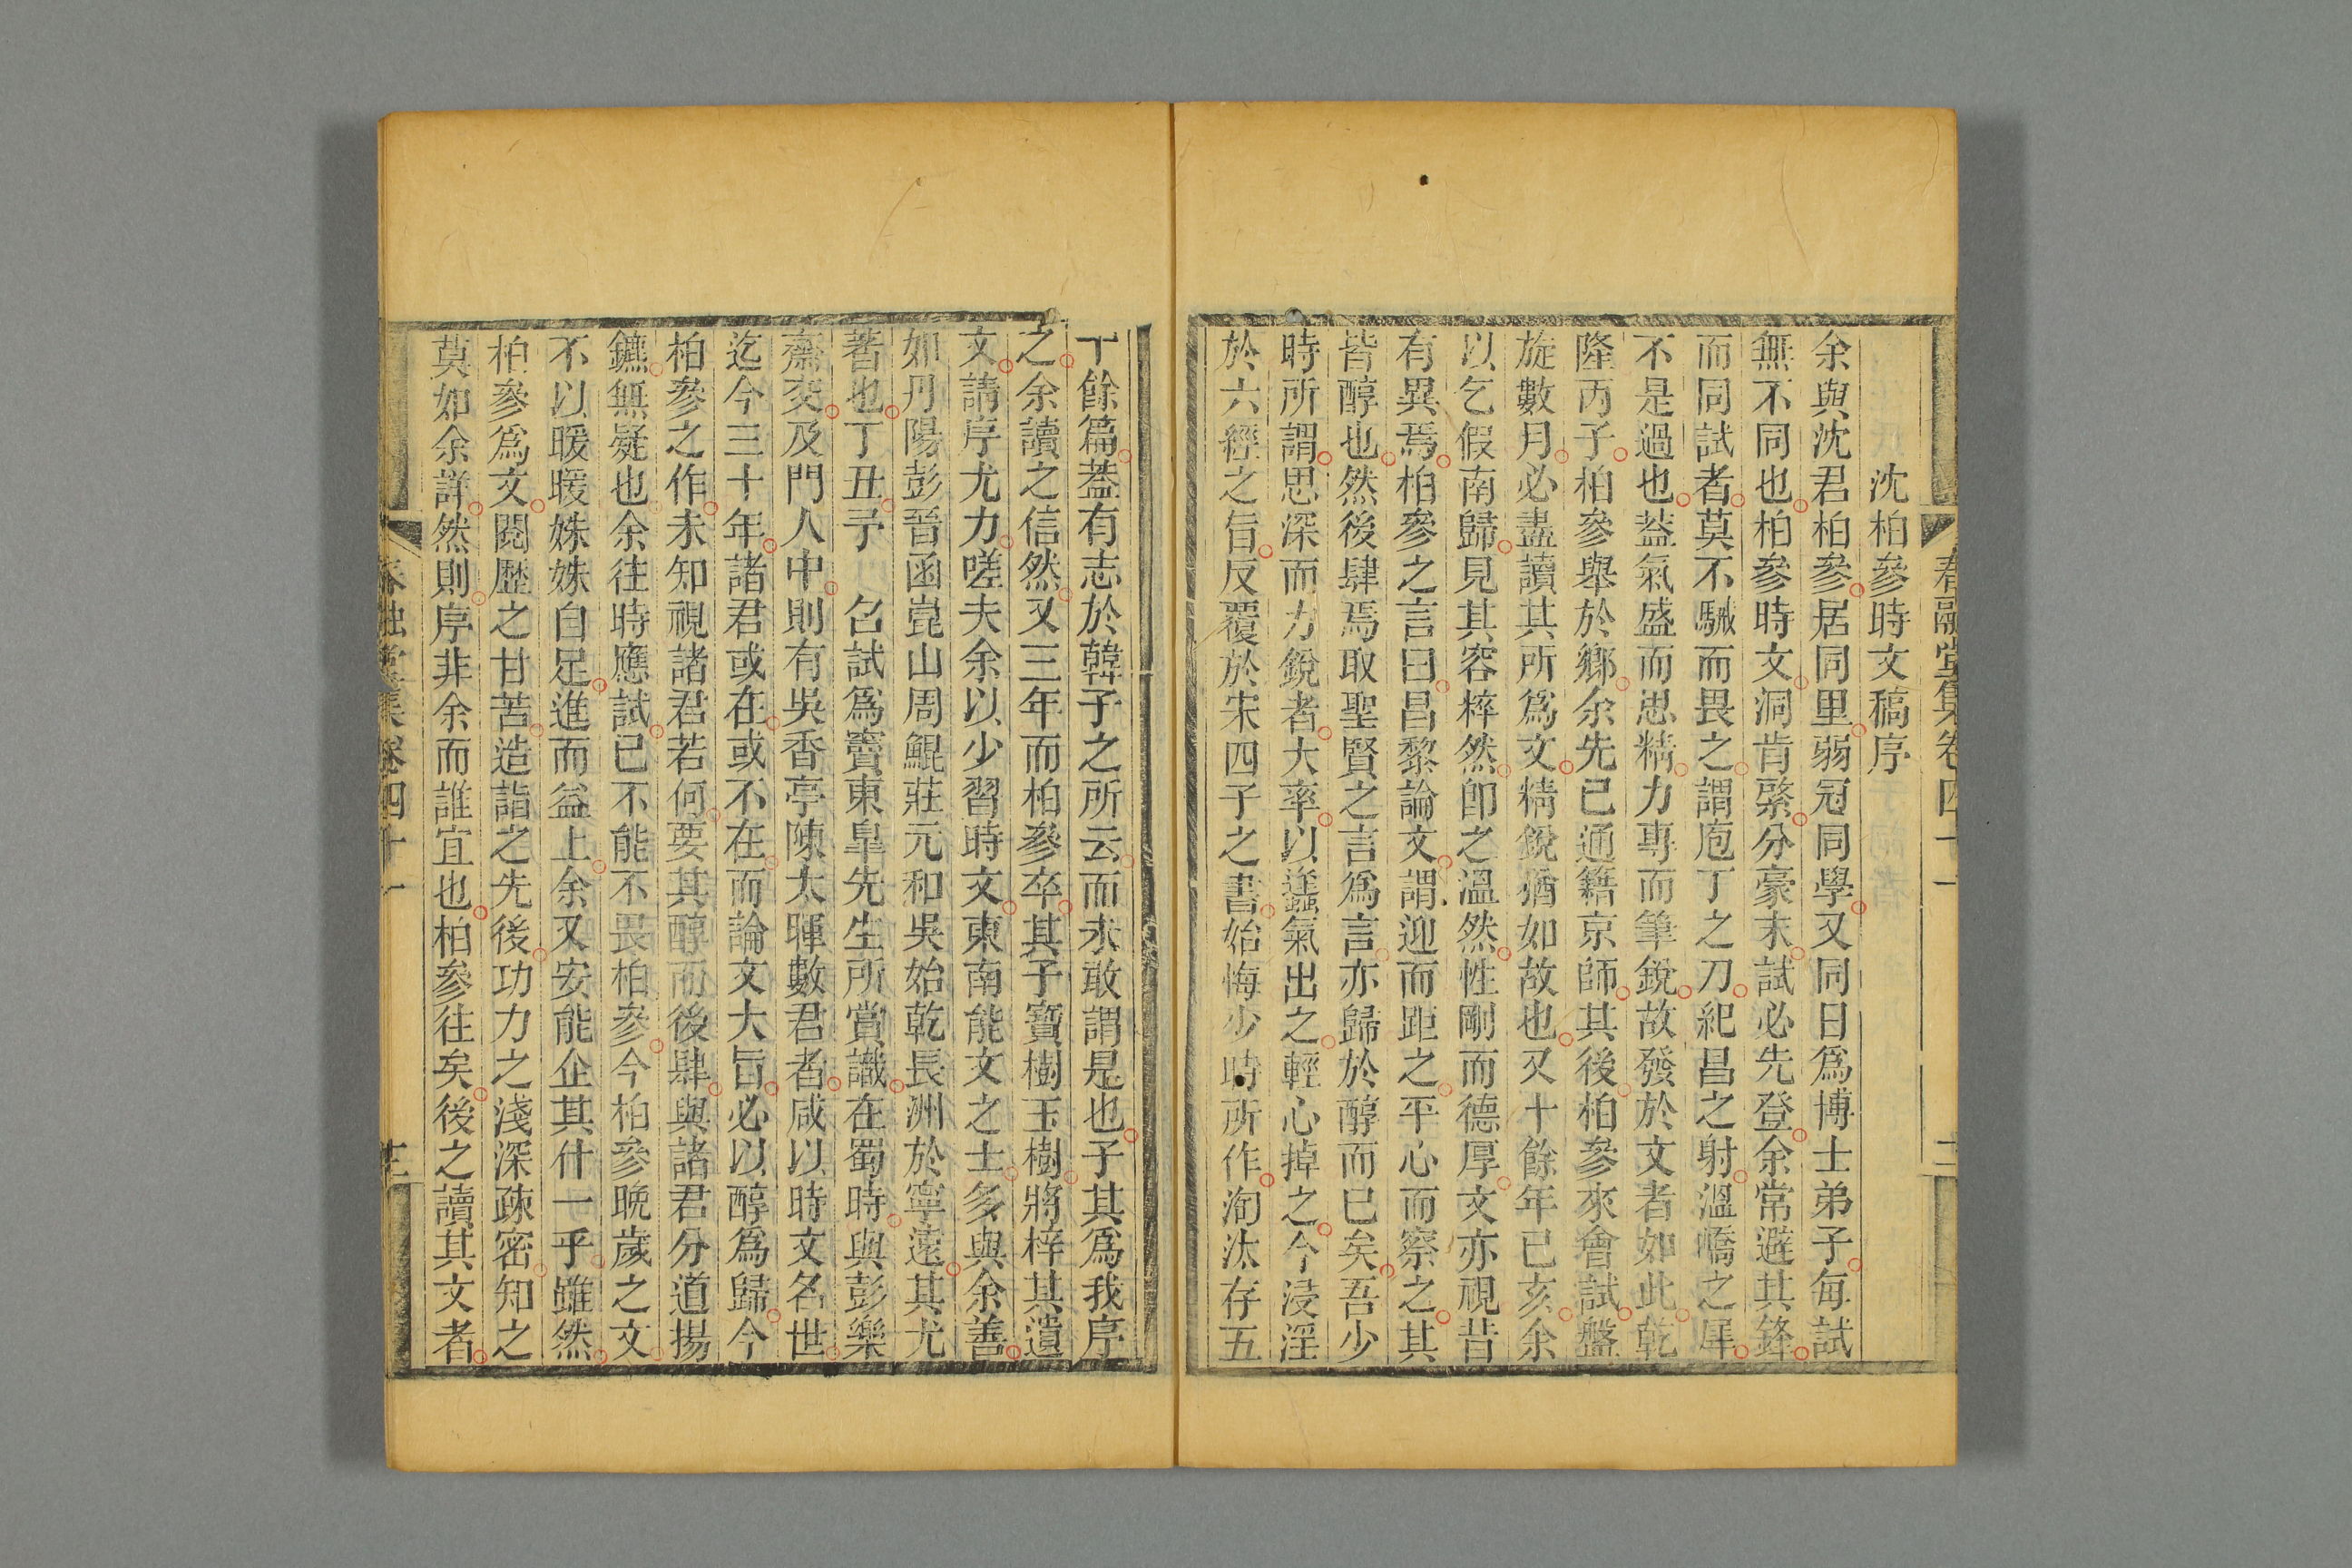 春融堂集卷四十一
二
沈柏參時文稿序
余與沈君柏參居同里弱冠同學又同日爲博士弟子每試
無不同也柏參時文洞肯綮分豪末試必先登余常避其鋒
而同試者莫不駴而畏之謂庖丁之刀紀昌之射溫嶠之犀
不是過也葢氣盛而思精力專而筆銳故發於文者如此乾
隆丙子柏參舉於鄉余先已通籍京師其後柏參來會試盤
旋數月必盡讀其所爲文精銳猶如故也又十餘年己亥余
以乞假南歸見其容粹然卽之溫然性剛而德厚文亦視昔
有異焉柏參之言曰昌黎論文謂迎而距之平心而察之其
皆醇也然後肆焉取聖賢之言爲言亦歸於醇而已矣吾少
時所謂思深而力銳者大率以蠭氣出之輕心掉之今浸淫
於六經之旨反覆於宋四子之書始悔少時所作洵汰存五
十餘篇葢有志於韓子之所云而未敢謂是也子其爲我序
之余讀之信然又三年而柏參卒其子寶樹玉樹將梓其遺
文請序尤力嗟夫余以少習時文東南能文之士多與余善
如丹陽彭晉函崑山周鯤莊元和吳始乾長洲於寧遠其尤
著也丁丑予 召試爲竇東皐先生所賞識在蜀時與彭樂
齋交及門人中則有吳香亭陳太暉數君者咸以時文名世
迄今三十年諸君或在或不在而論文大旨必以醇爲歸今
柏參之作未知視諸君若何要其醇而後肆與諸君分道揚
鑣無疑也余往時應試已不能不畏柏參今柏參晩歲之文
不以暖暖姝姝自足進而益上余又安能企其什一乎雖然
柏參爲文閱歷之甘苦造詣之先後功力之淺深疎密知之
莫如余詳然則序非余而誰宜也柏參往矣後之讀其文者
春融堂集卷四十一